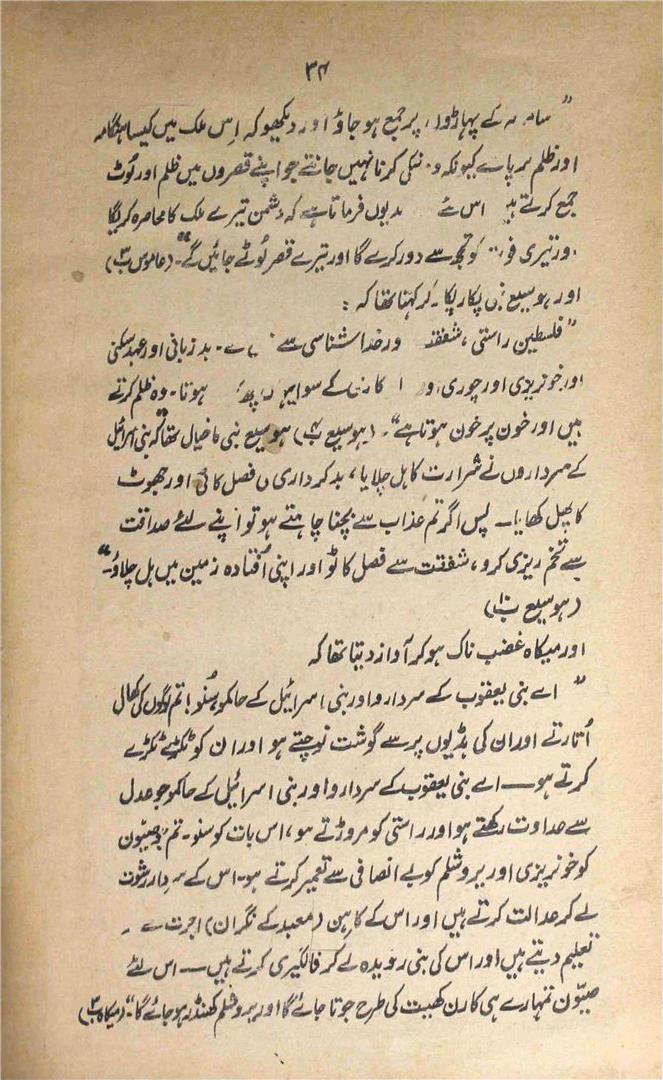 ۳۴
”سامریہ کے پہاڑوں پر جمع ہو جاؤ اور دیکھو کہ اِس ملک میں کیسا ہنگامہ
اور ظلم برپا ہے کیونکہ وہ نیکی کرنا نہیں جانتے جو اپنے قصروں میں ظلم اور لُوٹ
جمع کرتے ہیں اس لئے یوں فرماتا ہے کہ دشمن تیرے ملک کا محاصرہ کریگا
اور تیری قوت کو تجھ سے دور کرے گا اور تیرے قصر لُوٹے جائیں گے“۔ (عاموس ب ۳)
اور ہوسیع نبی پکار پکار کر کہتا تھا کہ :
”فلسطین راستی، شفقت اور خدا شناسی سے ہے۔ بدزبانی اور عہد شکنی
اور خونریزی اور چوری اور کاری کے سوا یہاں کچھ ہوتا۔ وہ ظلم کرتے
ہیں اور خون پر خون ہوتا ہے“۔ (ہوسیع ب ۴) ہوسیع نبی کا خیال تھا کہ بنی اسرائیل
کے سرداروں نے شرارت کا ہل چلایا، بدکرداری کی فصل کاٹی اور جھوٹ
کا پھل کھایا۔ پس اگر تم عذاب سے بچنا چاہتے ہو تو اپنے لئے صداقت
سے تخم ریزی کرو، شفقت سے فصل کاٹو اور اپنی اُفتادہ زمین میں ہل چلاؤ۔“
(ہوسیع ب ۱۰)
اور میکاہ غضب ناک ہو کر آواز دیتا تھا کہ
”اے بنی یعقوب کے سردارو اور بنی اسرائیل کے حاکمو سُنو! تم لوگوں کی کھال
اُتارتے اور ان کی ہڈیوں پر سے گوشت نوچتے ہو اور ان کو ٹکڑے ٹکڑے
کرتے ہو — اے بنی یعقوب کے سردارو اور بنی اسرائیل کے حاکمو جو عدل
سے عداوت رکھتے ہو اور راستی کو مروڑتے ہو، اس بات کو سنو۔ تم جو صیّون
کو خونریزی اور یروشلم کو بے انصافی سے تعمیر کرتے ہو۔ اس کے سردار رشوت
لے کر عدالت کرتے ہیں اور اس کے کاہن (معبد کے نگران) اجرت لے کر
تعلیم دیتے ہیں اور اس کی نبی روپیہ لے کر فالگیری کرتے ہیں — اس لئے
صیّون تمہارے ہی کارن کھیت کی طرح جوتا جائے گا اور یروشلم کھنڈر ہو جائے گا۔“ (میکاہ ب ۳)